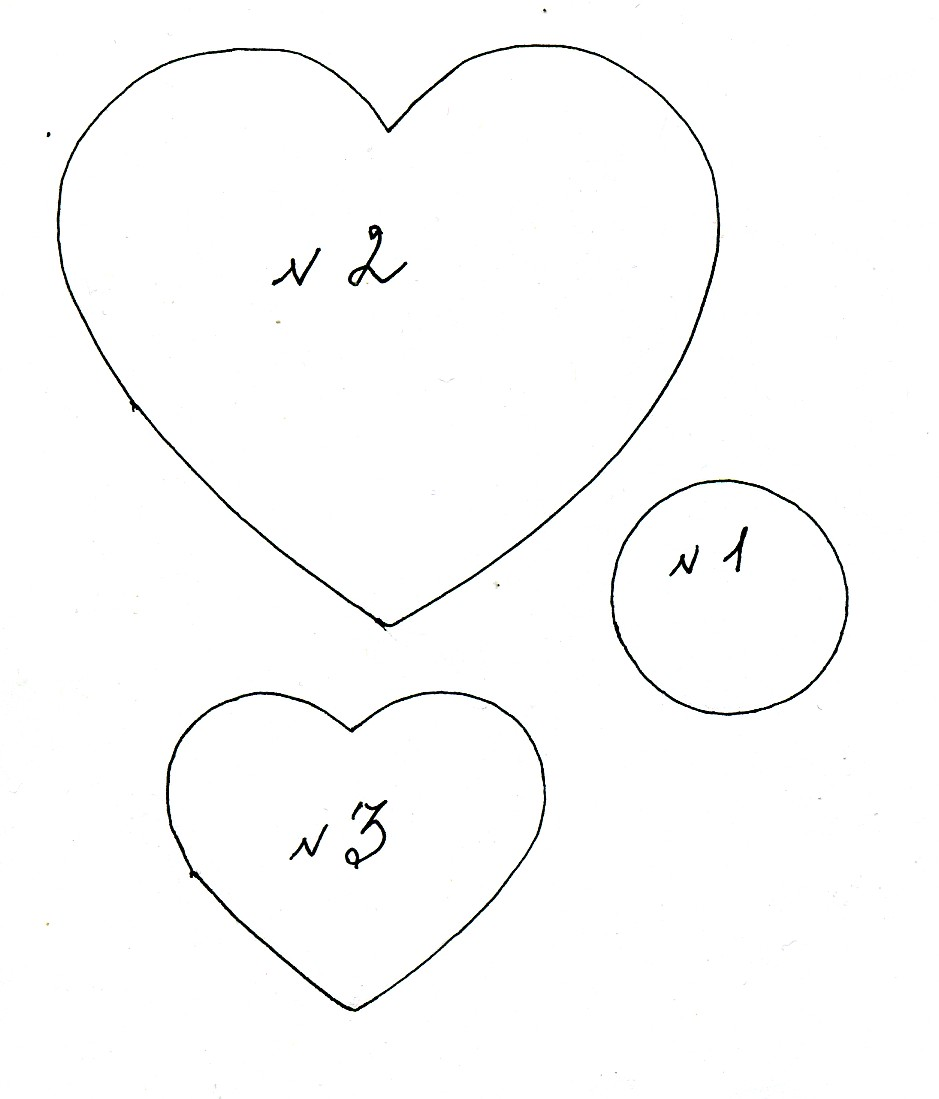 N 2
N 1
N 3